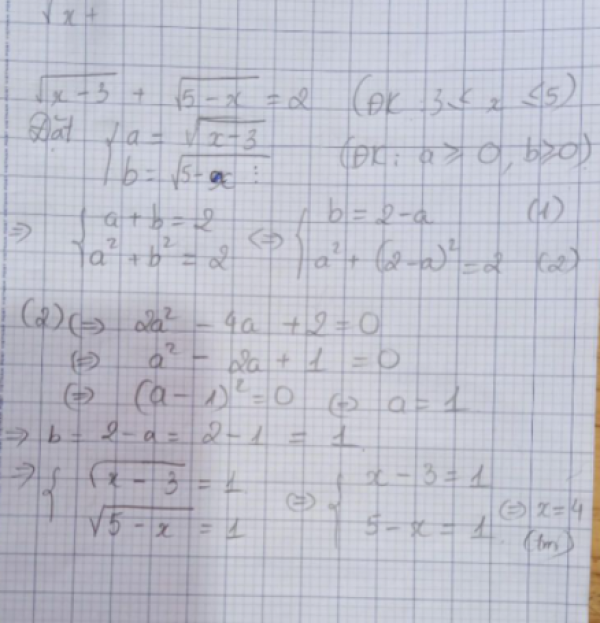 √x +
√x-3 + √5-x = 2 (ĐK 3 ≤ x ≤ 5)
Đặt { a = √x-3 (ĐK: a ≥ 0, b ≥ 0)
b = √5-x
=> { a + b = 2 <=> { b = 2-a (1)
a² + b² = 2 a² + (2-a)² = 2 (2)
(2) <=> 2a² - 4a + 2 = 0
<=> a² - 2a + 1 = 0
<=> (a-1)² = 0 <=> a = 1
=> b = 2-a = 2-1 = 1
=> { √x-3 = 1 <=> { x-3 = 1
√5-x = 1 5-x = 1 <=> x = 4
(tm)